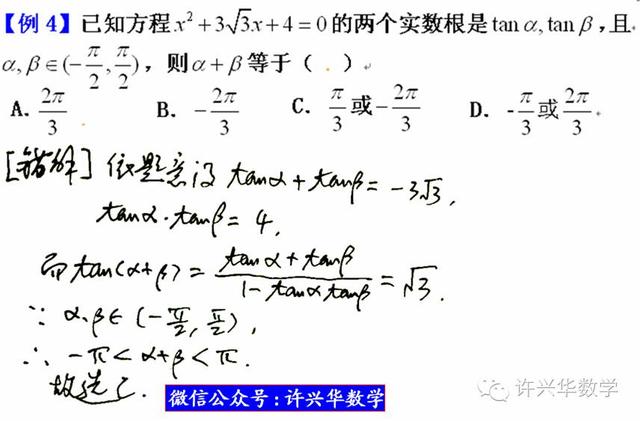 【例 4】已知方程 x² + 3√3x + 4 = 0 的两个实数根是 tan α, tan β ，且
α, β ∈ (-π/2, π/2) ，则 α + β 等于（ . ）
A. 2π/3 B. -2π/3 C. π/3 或 -2π/3 D. -π/3 或 2π/3
[错解] 依题意得 tanα + tanβ = -3√3,
tanα · tanβ = 4,
而 tan(α+β) = (tanα + tanβ)/(1 - tanα tanβ) = √3.
∵ α、β ∈ (-π/2, π/2),
∴ -π < α+β < π.
故选C.
微信公众号：许兴华数学
许兴华数学